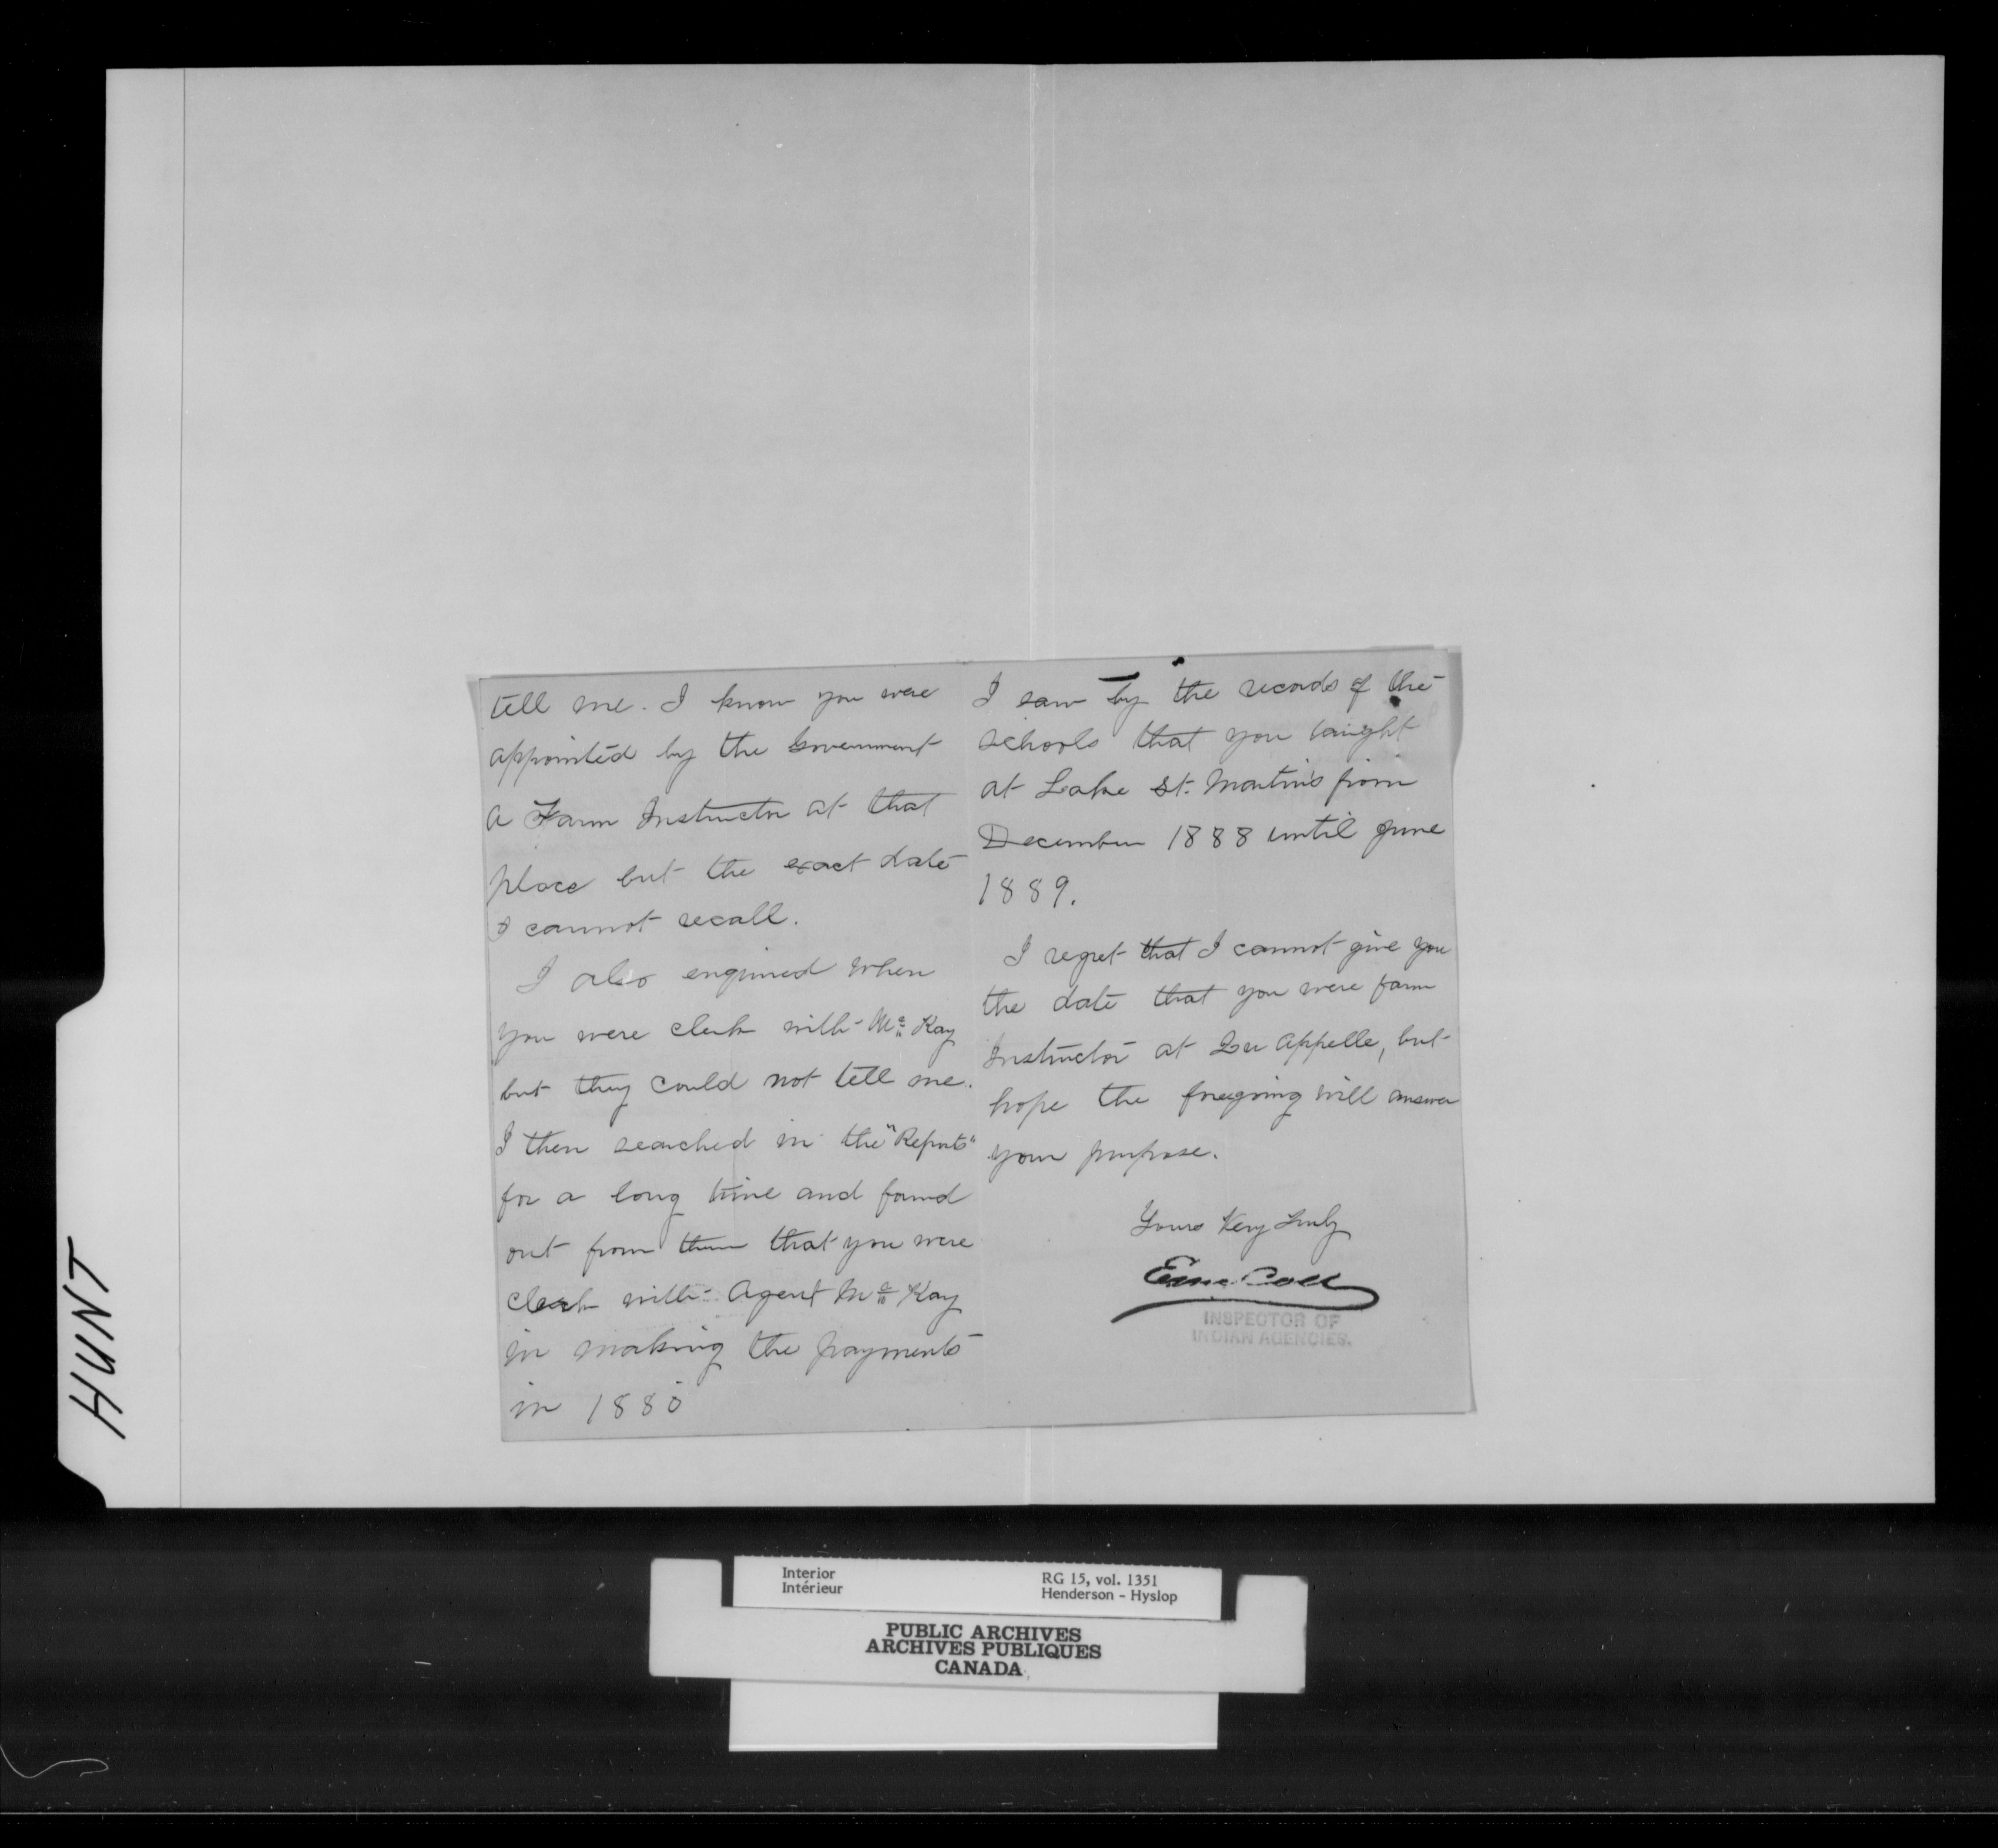 HUNT
tell me. I know you were
appointed by the Government
a Farm Instructor at that
place but the exact date
I cannot recall.
I also enquired when
you were clerk with Mc Kay
but they could not tell me.
I then searched in the "Reports"
for a long time and found
out from them that you were
clerk with Agent Mc Kay
in making the payments
in 1880
I saw by the records of the
schools that you taught
at Lake St. Martin's from
December 1888 until June
1889.
I regret that I cannot give you
the date that you were farm
Instructor at Qu Appelle, but
hope the foregoing will answer
your purpose.
Yours Very Truly
INSPECTOR OF
INDIAN AGENCIES.
Interior
Intérieur
RG 15, vol. 1351
Henderson - Hyslop
PUBLIC ARCHIVES
ARCHIVES PUBLIQUES
CANADA